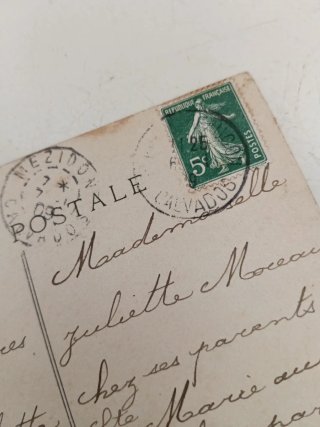 REPUBLIQUE FRANÇAISE
5c
POSTES
26
CALVADOS
MEZIDON
09
POSTALE
Mademoiselle
Juliette Moreau
chez ses parents
Ste Marie au